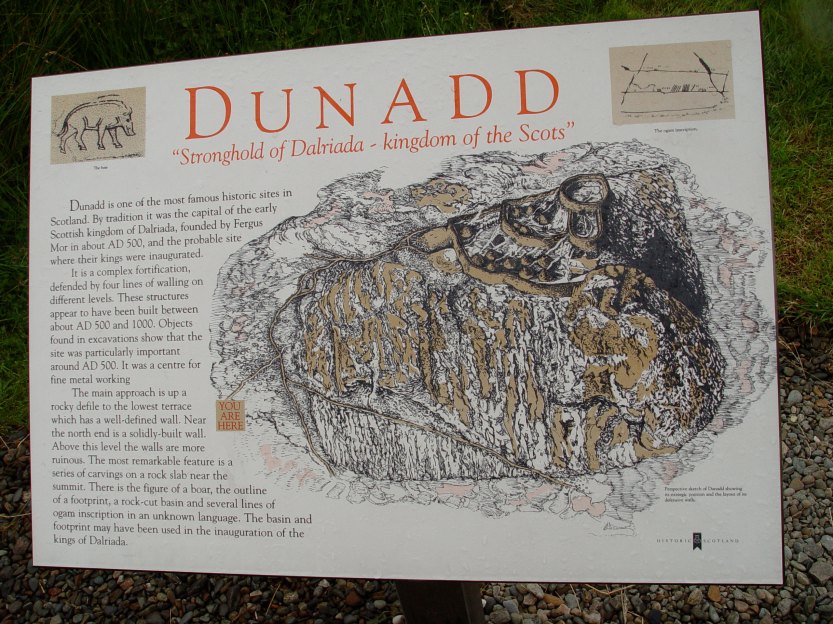 DUNADD
"Stronghold of Dalriada - kingdom of the Scots"
The boar
The ogam inscription.
Dunadd is one of the most famous historic sites in
Scotland. By tradition it was the capital of the early
Scottish kingdom of Dalriada, founded by Fergus
Mor in about AD 500, and the probable site
where their kings were inaugurated.
It is a complex fortification,
defended by four lines of walling on
different levels. These structures
appear to have been built between
about AD 500 and 1000. Objects
found in excavations show that the
site was particularly important
around AD 500. It was a centre for
fine metal working
The main approach is up a
rocky defile to the lowest terrace
which has a well-defined wall. Near
the north end is a solidly-built wall.
Above this level the walls are more
ruinous. The most remarkable feature is a
series of carvings on a rock slab near the
summit. There is the figure of a boar, the outline
of a footprint, a rock-cut basin and several lines of
ogam inscription in an unknown language. The basin and
footprint may have been used in the inauguration of the
kings of Dalriada.
YOU
ARE
HERE
Perspective sketch of Dunadd showing
its strategic position and the layout of its
defensive walls.
HISTORIC SCOTLAND